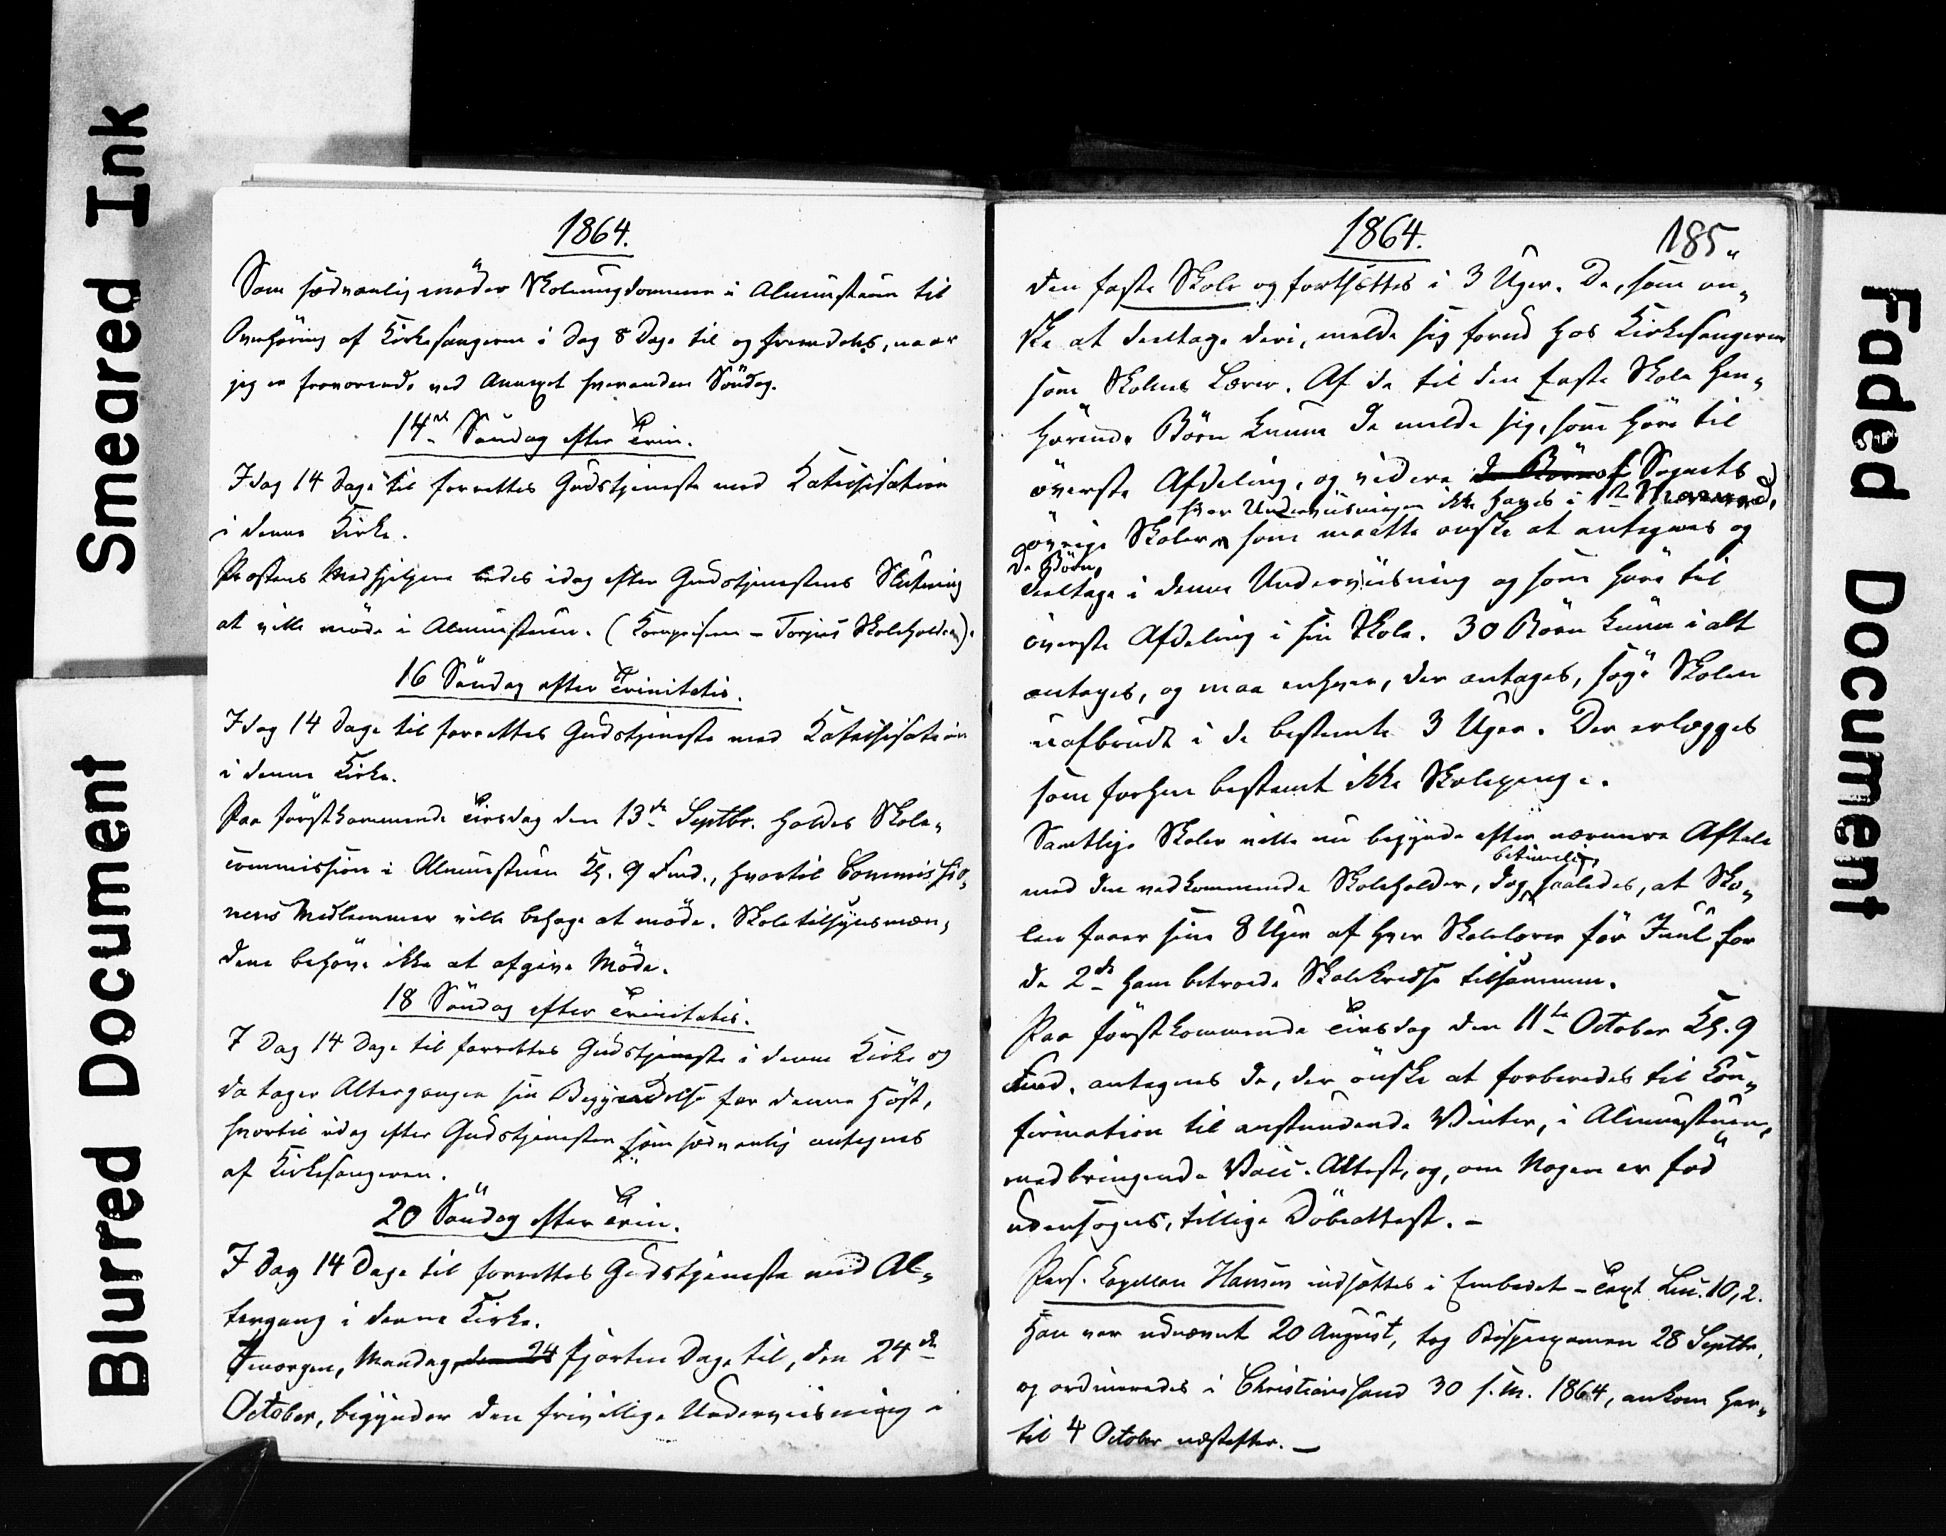 Smeared Ink
Blurred Document
1864.
Som sædvanlig möder Skoleungdommen i Almuestuen til
Overhöring af Kirkesangeren i Dag 8 Dage til og fremdeles, naar
jeg er fraværende ved Annexet hveranden Söndag.
14de Söndag efter Trin.
I dag 14 Dage til forrettes Gudstjeneste med Katechisation
i denne Kirke.
Præstens Medhjelpere bedes idag efter Gudstjenestens Slutning
at ville möde i Almuestuen. (
16 Söndag efter Trinitatis.
I dag 14 Dage til forrettes Gudstjeneste med Katechisation
i denne Kirke.
Paa förstkommende Tirsdag den 13de Septbr. holdes Skole-
commission i Almuestuen Kl. 9 Fmd., hvortil Commissio-
nens Medlemmer ville behage at möde. Skoletilsynsmæn-
dene behöve ikke at afgive Möde.
18 Söndag efter Trinitatis.
I Dag 14 Dage til forrettes Gudstjeneste i denne Kirke og
da tager Altergangen sin Begyndelse for denne Höst,
hvortil idag efter Gudstjenesten som sædvanlig antegnes
af Kirkesangeren.
20 Söndag efter Trin.
I Dag 14 Dage til forrettes Gudstjeneste med Al-
tergang i denne Kirke.
Imorgen, Mandag, den 24 fjorten Dage til, den 24de
October, begynder den frivillige Underviisning i
1864.
185
den faste Skole og fortsættes i 3 Uger. De, som ön-
ske at deeltage deri, melde sig forud hos Kirkesangeren
som Skolens Lærer. Af de til den faste Skole hen-
hörende Börn kunne de melde sig, som höre til
överste Afdeling, og videre de Börn af Sognets
hvor Underviisningen ikke haves i
övrige Skoler som maatte önske at antegnes og
de Börn,
deeltage i denne Underviisning og som höre til
överste Afdeling i sin Skole. 30 Börn kunne i alt
antages, og maa enhver, der antages, søge Skolen
uafbrudt i de bestemte 3 Uger. Der erlægges
som forhen bestemt ikke Skolepenge.
Samtlige Skoler ville nu begynde efter nærmere Aftale
betimelig,
med den vedkommende Skoleholder, dog saaledes, at Sko-
len faaer sine 8 Uger af hver Skolelærer för Juul for
de 2de ham betroede Skolekredse tilsammen.
Paa förstkommende Tirsdag den 11te October Kl. 9
Fmd. antegnes de, der önske at forberedes til Con-
firmation til anstundende Vinter, i Almuestuen,
medbringende Vacc. Attest, og, om Nogen er föd
udensogns, tillige Döbeattest. –
Pers. Capellan Hansen indsættes i Embedet – Text Luc. 10,2.
Han var udnævnt 20 August, tog Bispexamen 28 Septbr.
og ordineredes i Christianssand 30 s. M. 1864, ankom her-
til 4 October næstefter. –
Faded Document